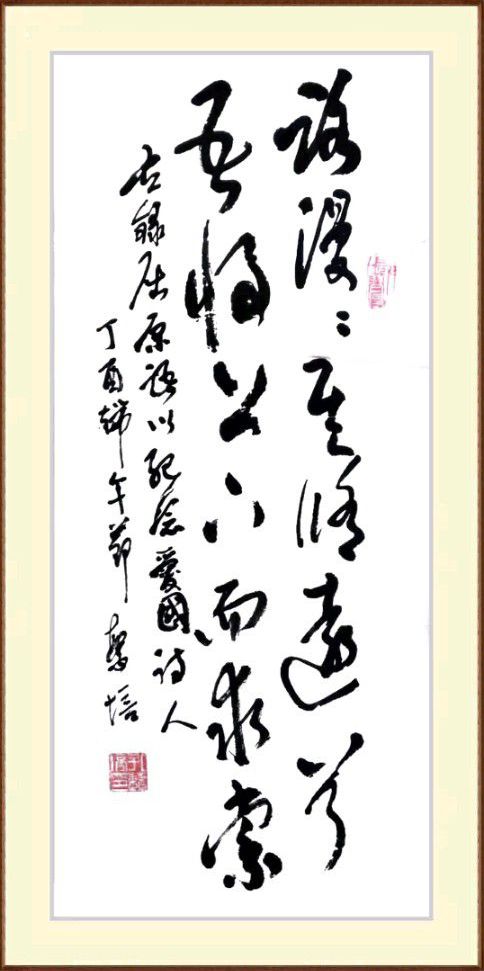 路漫〻其修遠兮
吾将上下而求索
右録屈原語以紀念愛國詩人
丁酉端午節 培